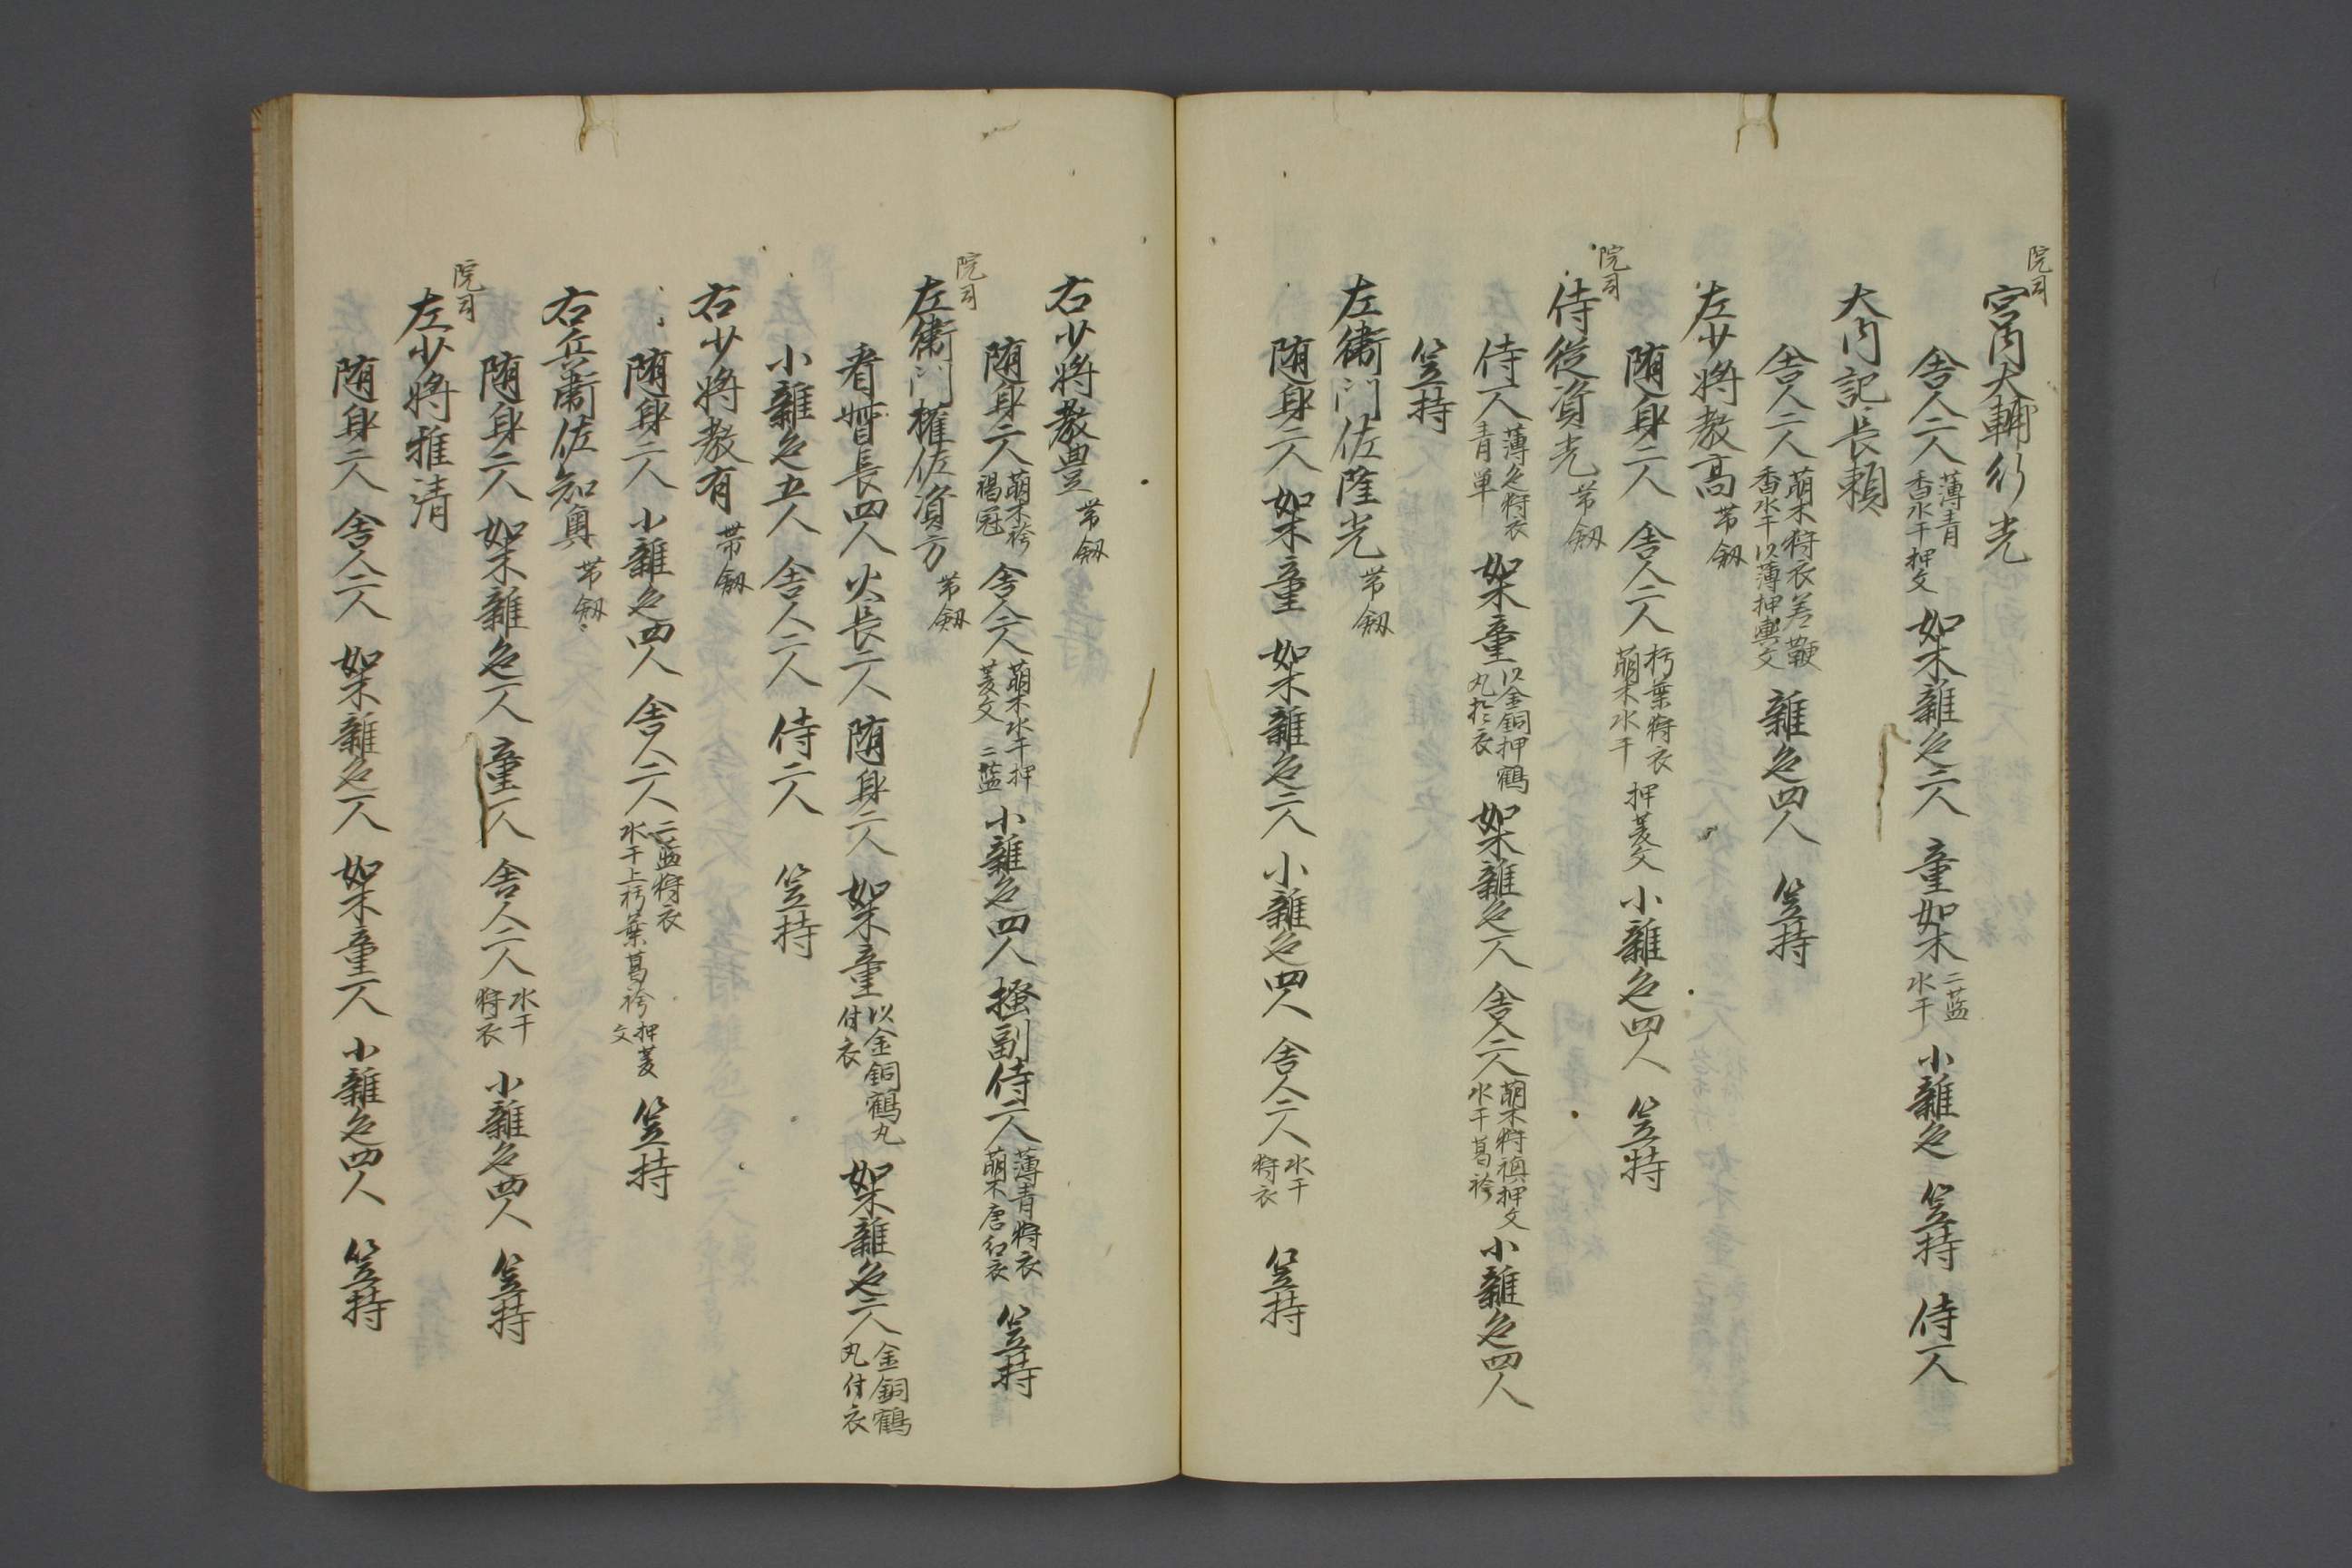 院司
宮内大輔行光
舎人二人 薄青 香水干押文 如木雑色二人 童如木 二藍 水干 小雑色 笠持 侍一人
大内記長頼
舎人二人 萌木狩衣差鞭 香水干以薄押輿文 雑色四人 笠持
左少将教高 帯剱
随身二人 舎人二人 朽葉狩衣 萌木水干 押菱文 小雑色四人 笠持
院司
侍従資光 帯剱
侍一人 薄色狩衣 青単 如木童 以金銅押鶴 丸於衣 如木雑色一人 舎人二人 萌木狩襖押文 水干葛袴 小雑色四人
笠持
左衛門佐隆光 帯剱
随身二人 如木童 如木雑色二人 小雑色四人 舎人二人 水干 狩衣 笠持
右少将教豊 帯剱
随身二人 萌木袴 褐冠 舎人二人 萌木水干押 菱文 二藍 小雑色四人 掻副侍一人 薄青狩衣 萌木唐紅衣 笠持
院司
左衛門権佐資方 帯剱
看督長四人 火長二人 随身二人 如木童 以金銅鶴丸 付衣 如木雑色二人 金銅鶴 丸付衣
小雑色五人 舎人二人 侍二人 笠持
右少将教有 帯剱
随身二人 小雑色四人 舎人二人 二藍狩衣 水干上朽葉葛袴 押菱 文 笠持
右兵衛佐知興 帯剱
随身二人 如木雑色一人 童一人 舎人二人 水干 狩衣 小雑色四人 笠持
院司
左少将雅清
随身二人 舎人二人 如木雑色一人 如木童一人 小雑色四人 笠持